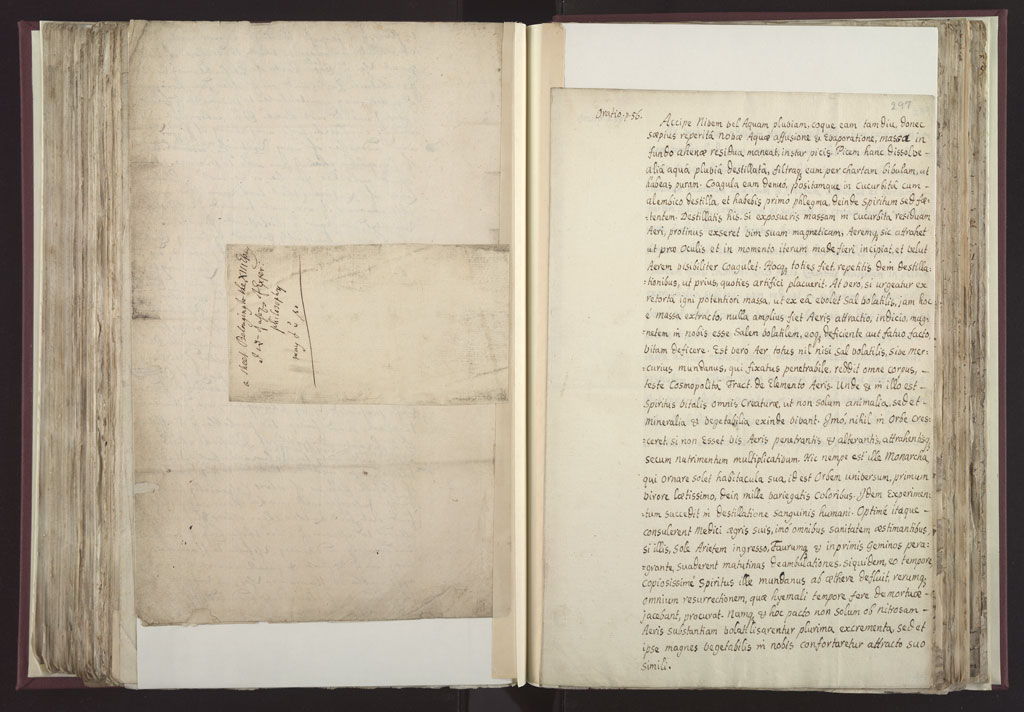 a sheet Belonging to the XIII
of Exper:
philosophy
may y
297
Oratio, p. 56.
Accipe Nivem vel Aquam pluviam, coque eam tam diu, donec
sæpius reperitâ novæ Aquæ affusione & Evaporatione, massa in
fundo ahenæ residua maneat, instar picis. Picem hanc dissolve
aliâ aquâ pluviâ destillatâ, filtraq; eam per chartam bibulam, ut
habeas puram. Coagula eam denuo, positamque in cucurbitâ cum
alembico destilla, et habebis primo phlegma, deinde Spiritum sed fœ-
tentem. Destillatis his, si exposueris massam in cucurbita residuam
Aëri, protinus exseret vim suam magneticam, Aeremq; sic attrahet
ut præ Oculis et in momento iterum madefieri incipiat, et velut
Aerem visibiliter Coagulet. Hocq; toties fiet, repetitis dem destilla-
=tionibus, ut prius, quoties artifici placuerit. At vero, si urgeatur ex
retortâ igni potentiori massa, ut ex eâ evolet Sal volatilis, jam hoc
è massa extracto, nulla amplius fiet Aeris attractio, indicio, mag-
netem in nobis esse Salem volatilem, eoq; deficiente aut fatuo facto
vitam deficere. Est vero Aer totus nil nisi Sal volatilis, sive mer-
curius mundanus, qui fixatus penetrabile, reddit omne corpus,
teste Cosmopolitâ Tract. de Elemento Aeris. Unde & in illo est
Spiritus vitalis omnis Creaturæ, ut non solum animalia, sed et
mineralia & vegetabilia exinde vivant. Imò, nihil in Orbe cres-
=ceret, si non esset vis Aeris penetrantis & alterantis, attrahentisq;
secum nutrimentum multiplicativum. Hic nempe est ille Monarcha
qui ornare solet habitacula sua, id est Orbem universum, primum
virore lætissimo, dein mille variegatis Coloribus. Idem Experimen-
tum succedit in destillatione sanguinis humani. Optimè itaque
consulerent Medici ægris suis, imò omnibus sanitatem æstimantibus
si illis, Sole Arietem ingresso, Taurumq; & inprimis Geminos pera=
=grante, suaderent matutinas deambulationes, siquidem, eo tempore
copiosissimè Spiritus ille mundanus ab æthere defluit, rerumq;
omnium resurrectionem, quæ hyemali tempore fere demortuæ
jacebant, procurat. Numq; & hoc pacto non solum ob nitrosam
Aeris substantiam volatilisarentur plurima excrementa, sed et
ipse magnes vegetabilis in nobis confortaretur attracto suo
simili.